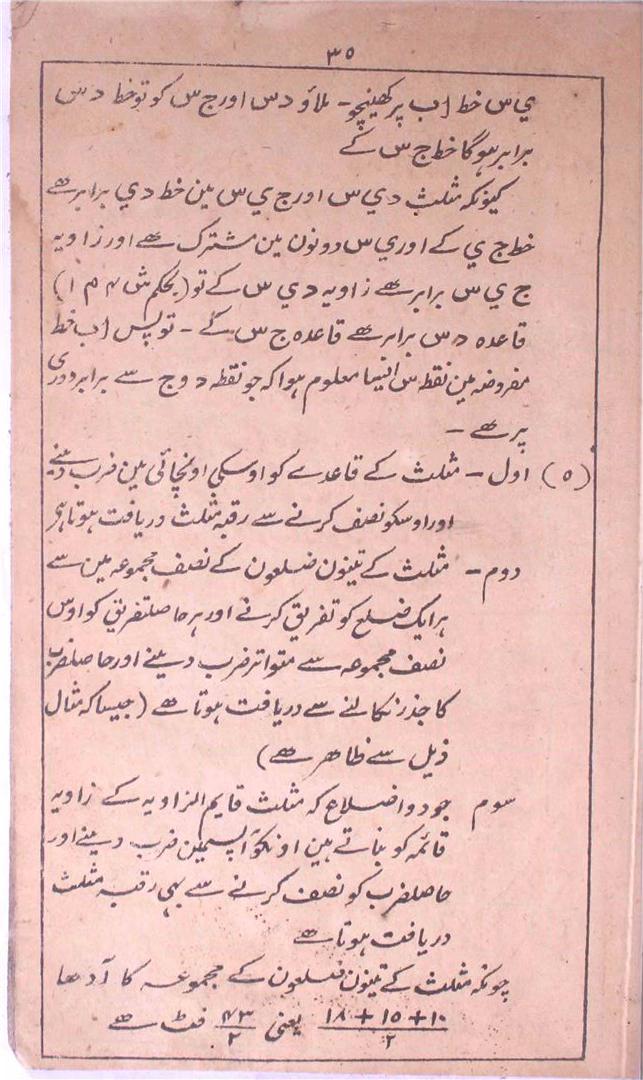 ۳۵
ي س خط اب پر کھینچو۔ ملاؤ د س اور ج س کو تو خط د س
برابر ہوگا خط ج س کے
کیونکہ مثلث د ي س اور ج ي س مین خط د ي برابر ہے
خط ج ي کے اور ي س دونون مین مشترک ہے اور زاویہ
ج ي س برابر ہے زاویہ د ي س کے تو (بحکم ش ۴ م ۱)
قاعدہ د س برابر ہے قاعدہ ج س کے ۔ تو پس اب خط
مفروضہ مین نقطہ س ایسا معلوم ہوا کہ جو نقطہ د و ج سے برابر دوری
پر ہے ۔
(۵) اول ۔ مثلث کے قاعدے کو اوسکي اونچائی مین ضرب دینے
اور اوسکو نصف کرنے سے رقبہ مثلث دریافت ہوتا ہی
دوم ۔ مثلث کے تینون ضلعون کے نصف مجموعہ مین سے
ہر ایک ضلع کو تفریق کرنے اور ہر حاصلتفریق کو اوس
نصف مجموعہ سے متواتر ضرب دینے اور حاصلضرب
کا جذر نکالنے سے دریافت ہوتا ہے (جیسا کہ مثال
ذیل سے ظاہر ہے)
سوم جو دو اضلاع کہ مثلث قایم الزاویہ کے زاویہ
قائمہ کو بناتے ہین اونکو آپسمین ضرب دینے اور
حاصلضرب کو نصف کرنے سے بہی رقبہ مثلث
دریافت ہوتا ہے
چونکہ مثلث کے تینون ضلعون کے مجموعہ کا آدھا
۱۸ + ۱۵ + ۱۰ / ۲ یعنی ۴۳ / ۲ فٹ ہے